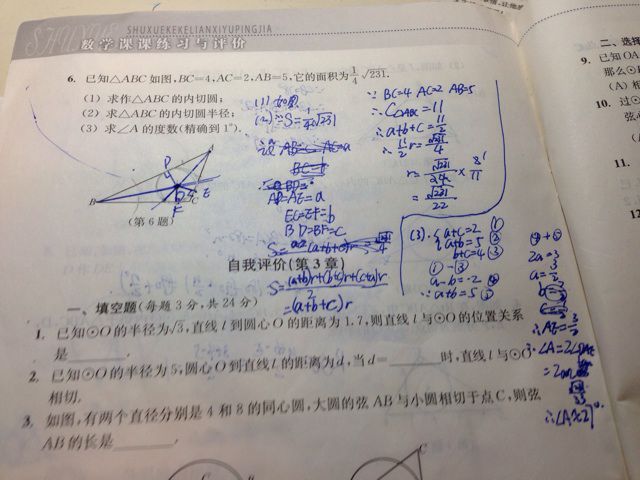 SHUXUEKEKELIANXIYUPINGJIA
数学课课练习与评价
6. 已知△ABC如图,BC=4,AC=2,AB=5,它的面积为1/4√231.
(1) 求作△ABC的内切圆;
(2) 求△ABC的内切圆半径;
(3) 求∠A的度数(精确到1°).
(第6题)
B
E
F
(1) 如图
(2) ∵S=1/4√231
AD=AE=a
EC=EF=b
BD=BF=c
S=(a+b)r+(b+c)r+(c+a)r/2
=(a+b+c)r
∵BC=4 AC=2 AB=5
∴C△ABC=11
∴a+b+c=11/2
∴11/2r=√231/4
=√231/22
(3).
a+c=2 ①
a+b=5 ②
b+c=4 ③
①-③
a-b=-2 ④
∴a+b=5 ②
④+②
2a=3
a=3/2
∴AE=3/2
自我评价(第3章)
一、填空题(每题3分,共24分)
1. 已知⊙O的半径为√3,直线l到圆心O的距离为1.7,则直线l与⊙O的位置关系
是
2. 已知⊙O的半径为5,圆心O到直线l的距离为d,当d= 时,直线l与⊙O
相切.
3. 如图,有两个直径分别是4和8的同心圆,大圆的弦AB与小圆相切于点C,则弦
AB的长是
C
二、选择
9. 已知OA
那么⊙
(A) 相
10. 过⊙
弦心
11.
12